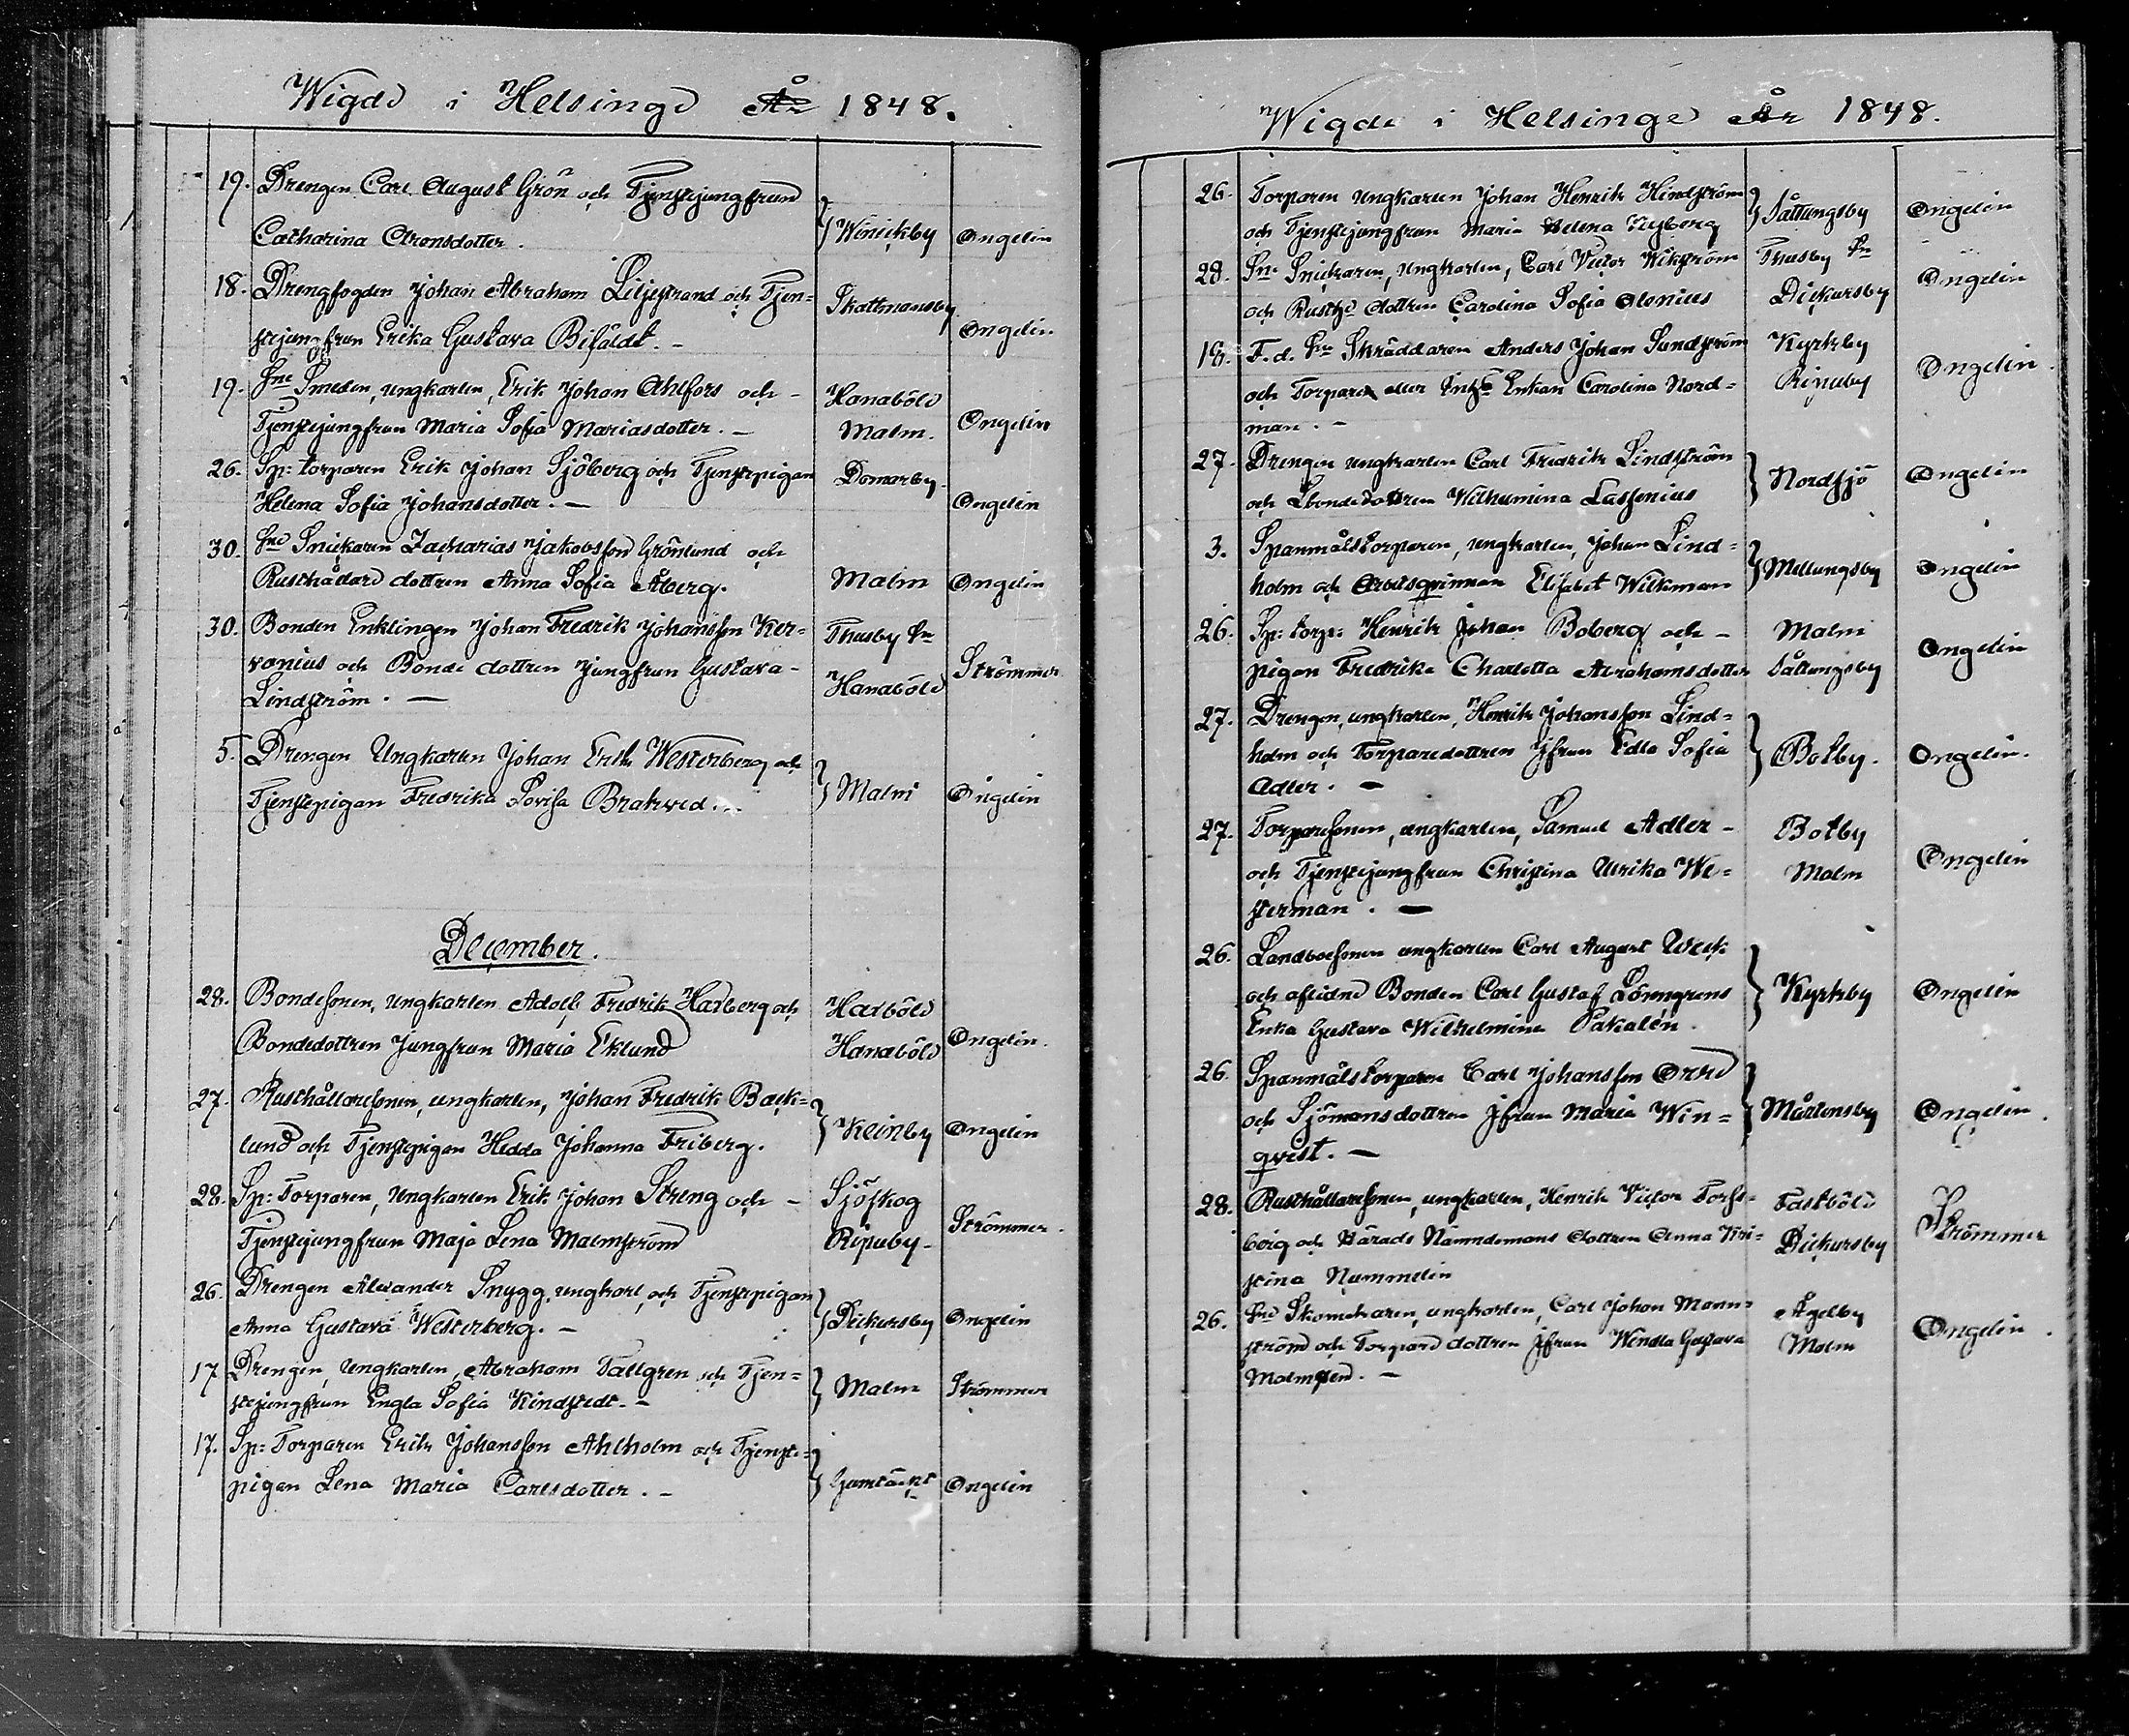 Wigde i Helsinge År 1848.
19. Drengen Carl August Grön och Tjenstejungfrun
Catharina Aronsdotter. Winickby Ongelin
18. Drengfogden Johan Abraham Liljestrand och Tjen=
stejungfrun Erika Gustava Bifäldt. – Skattmansby Ongelin
19. Sne Smeden, ungkarlen, Erik Johan Ahlfors och – Hanaböle
Tjenstejungfrun Maria Sofia Mariasdotter. – Malm. Ongelin
26. Sp: torparen Erik Johan Sjöberg och Tjenstepigan Domarby
Helena Sofia Johansdotter. – Ongelin
30. Sne Snickaren Zacharias Jakobsson Grönlund och
Rusthållare dottren Anna Sofia Åberg. Malm Ongelin
30. Bonden Enklingen Johan Fredrik Johansson Ker= Thusby Sn
vonius och Bonde dottren Jungfrun Gustava – Strömmer
Lindström. – Hanaböle
5. Drengen Ungkarlen Johan Erik Westerberg och
Tjenstepigan Fredrika Lovisa Brakved. – Malm Ongelin
December.
28. Bondesonen, Ungkarlen Adolf Fredrik Haxberg och Haxböle
Bondedottren Jungfrun Maria Eklund Hanaböle Ongelin.
27. Rusthållaresonen, ungkarlen, Johan Fredrik Back=
lund och Tjenstepigan Hedda Johanna Friberg. Keinby Ongelin
28. Sp: Torparen, Ungkarlen Erik Johan Streng och – Sjöskog
Tjenstejungfrun Maja Lena Malmström Ripuby – Strömmer.
26. Drengen Alexander Snygg, ungkarl, och Tjenstepigan
Anna Gustava Westerberg. – Dickursby Ongelin
17 Drengen, Ungkarlen, Abraham Tallgren och Tjen=
stejungfrun Engla Sofia Kindstedt. – Malm Strömmer
17. Sp: Torparen Erik Johansson Ahlholm och Tjenste=
pigan Lena Maria Carlsdotter. – Gamtäckt Ongelin
Wigde i Helsinge År 1848.
26. Torparen Ungkarlen Johan Henrik Hindström
och Tjenstejungfrun Maria Helena Nyberg Såttungsby Ongelin
28. Sne Snickaren, Ungkarlen, Carl Victor Wikström Thusby Sn
och Rusth: dottren Carolina Sofia Alenius Dickursby Ongelin
18. F. d. Sne Skräddaren Anders Johan Sundström Kyrkby
och Torpare eller Enkan Carolina Nord= Ripuby Ongelin.
man. –
27. Drengen ungkarlen Carl Fredrik Lindström
och Lbondedottren Wilhelmina Lassenius Nordsjö Ongelin
3. Spanmålstorparen, ungkarlen, Johan Lind=
holm och Arbetsqvinnan Elisabet Wickman Mellungsby Ongelin
26. Sp: torp: Henrik Johan Boberg och – Malm
pigan Fredrika Charlotta Abrahamsdotter Såttungsby Ongelin
27. Drengen, ungkarlen, Henrik Johansson Lind=
holm och Torparedottren Jfrun Edla Sofia Botby. Ongelin.
Adler. –
27. Torparesonen, ungkarlen, Samuel Adler – Botby
och Tjenstejungfrun Christina Ulrika We= Malm Ongelin
sterman. –
26. Landboesonen ungkarlen Carl August Weck
och aflidne Bonden Carl Gustaf Lönngrens Kyrkby Ongelin
Enka Gustava Wilhelmina Pakalén.
26. Spanmålstorparen Carl Johansson Orre
och Sjömansdottren Jfrun Maria Win= Mårtensby Ongelin.
qvist. –
28. Rusthållaresonen, ungkarlen, Henrik Victor Forss= Fastböle
berg och Härads Nämndemans dottren Anna Kri= Dickursby Strömmer
stina Nummelin
26. Sne Skomakaren, ungkarlen, Carl Johan Mann= Agelby
ström och Torpare dottren Jfrun Wendla Gustava Malm Ongelin.
Malmsten. –